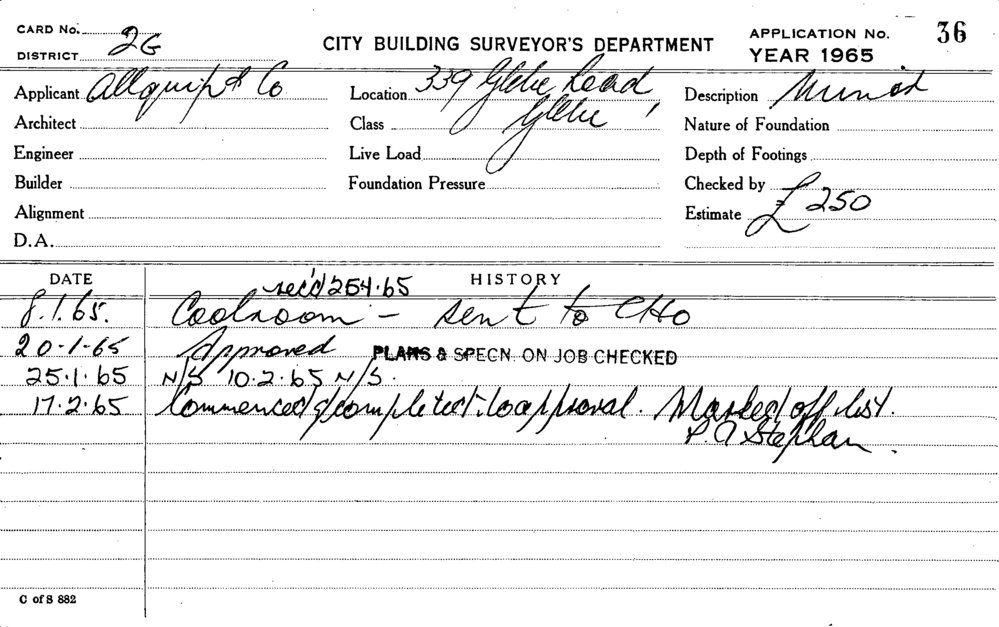 CARD No. 2G
DISTRICT
CITY BUILDING SURVEYOR'S DEPARTMENT
APPLICATION No. 36
YEAR 1965
Applicant Allquip & Co
Location 339 Glebe Road
Glebe
Description Minor
Architect
Class
Nature of Foundation
Engineer
Live Load
Depth of Footings
Builder
Foundation Pressure
Checked by
Alignment
Estimate £250
D.A.
DATE
HISTORY
rec'd 25.1.65
8.1.65. Coolroom - sent to CHO
20-1-65 Approved PLANS & SPECN. ON JOB CHECKED
25.1.65 N/S 10.2.65 N/S.
17.2.65 Commenced & completed to approval. Marked off list.
P. A Stephan.
C of S 882